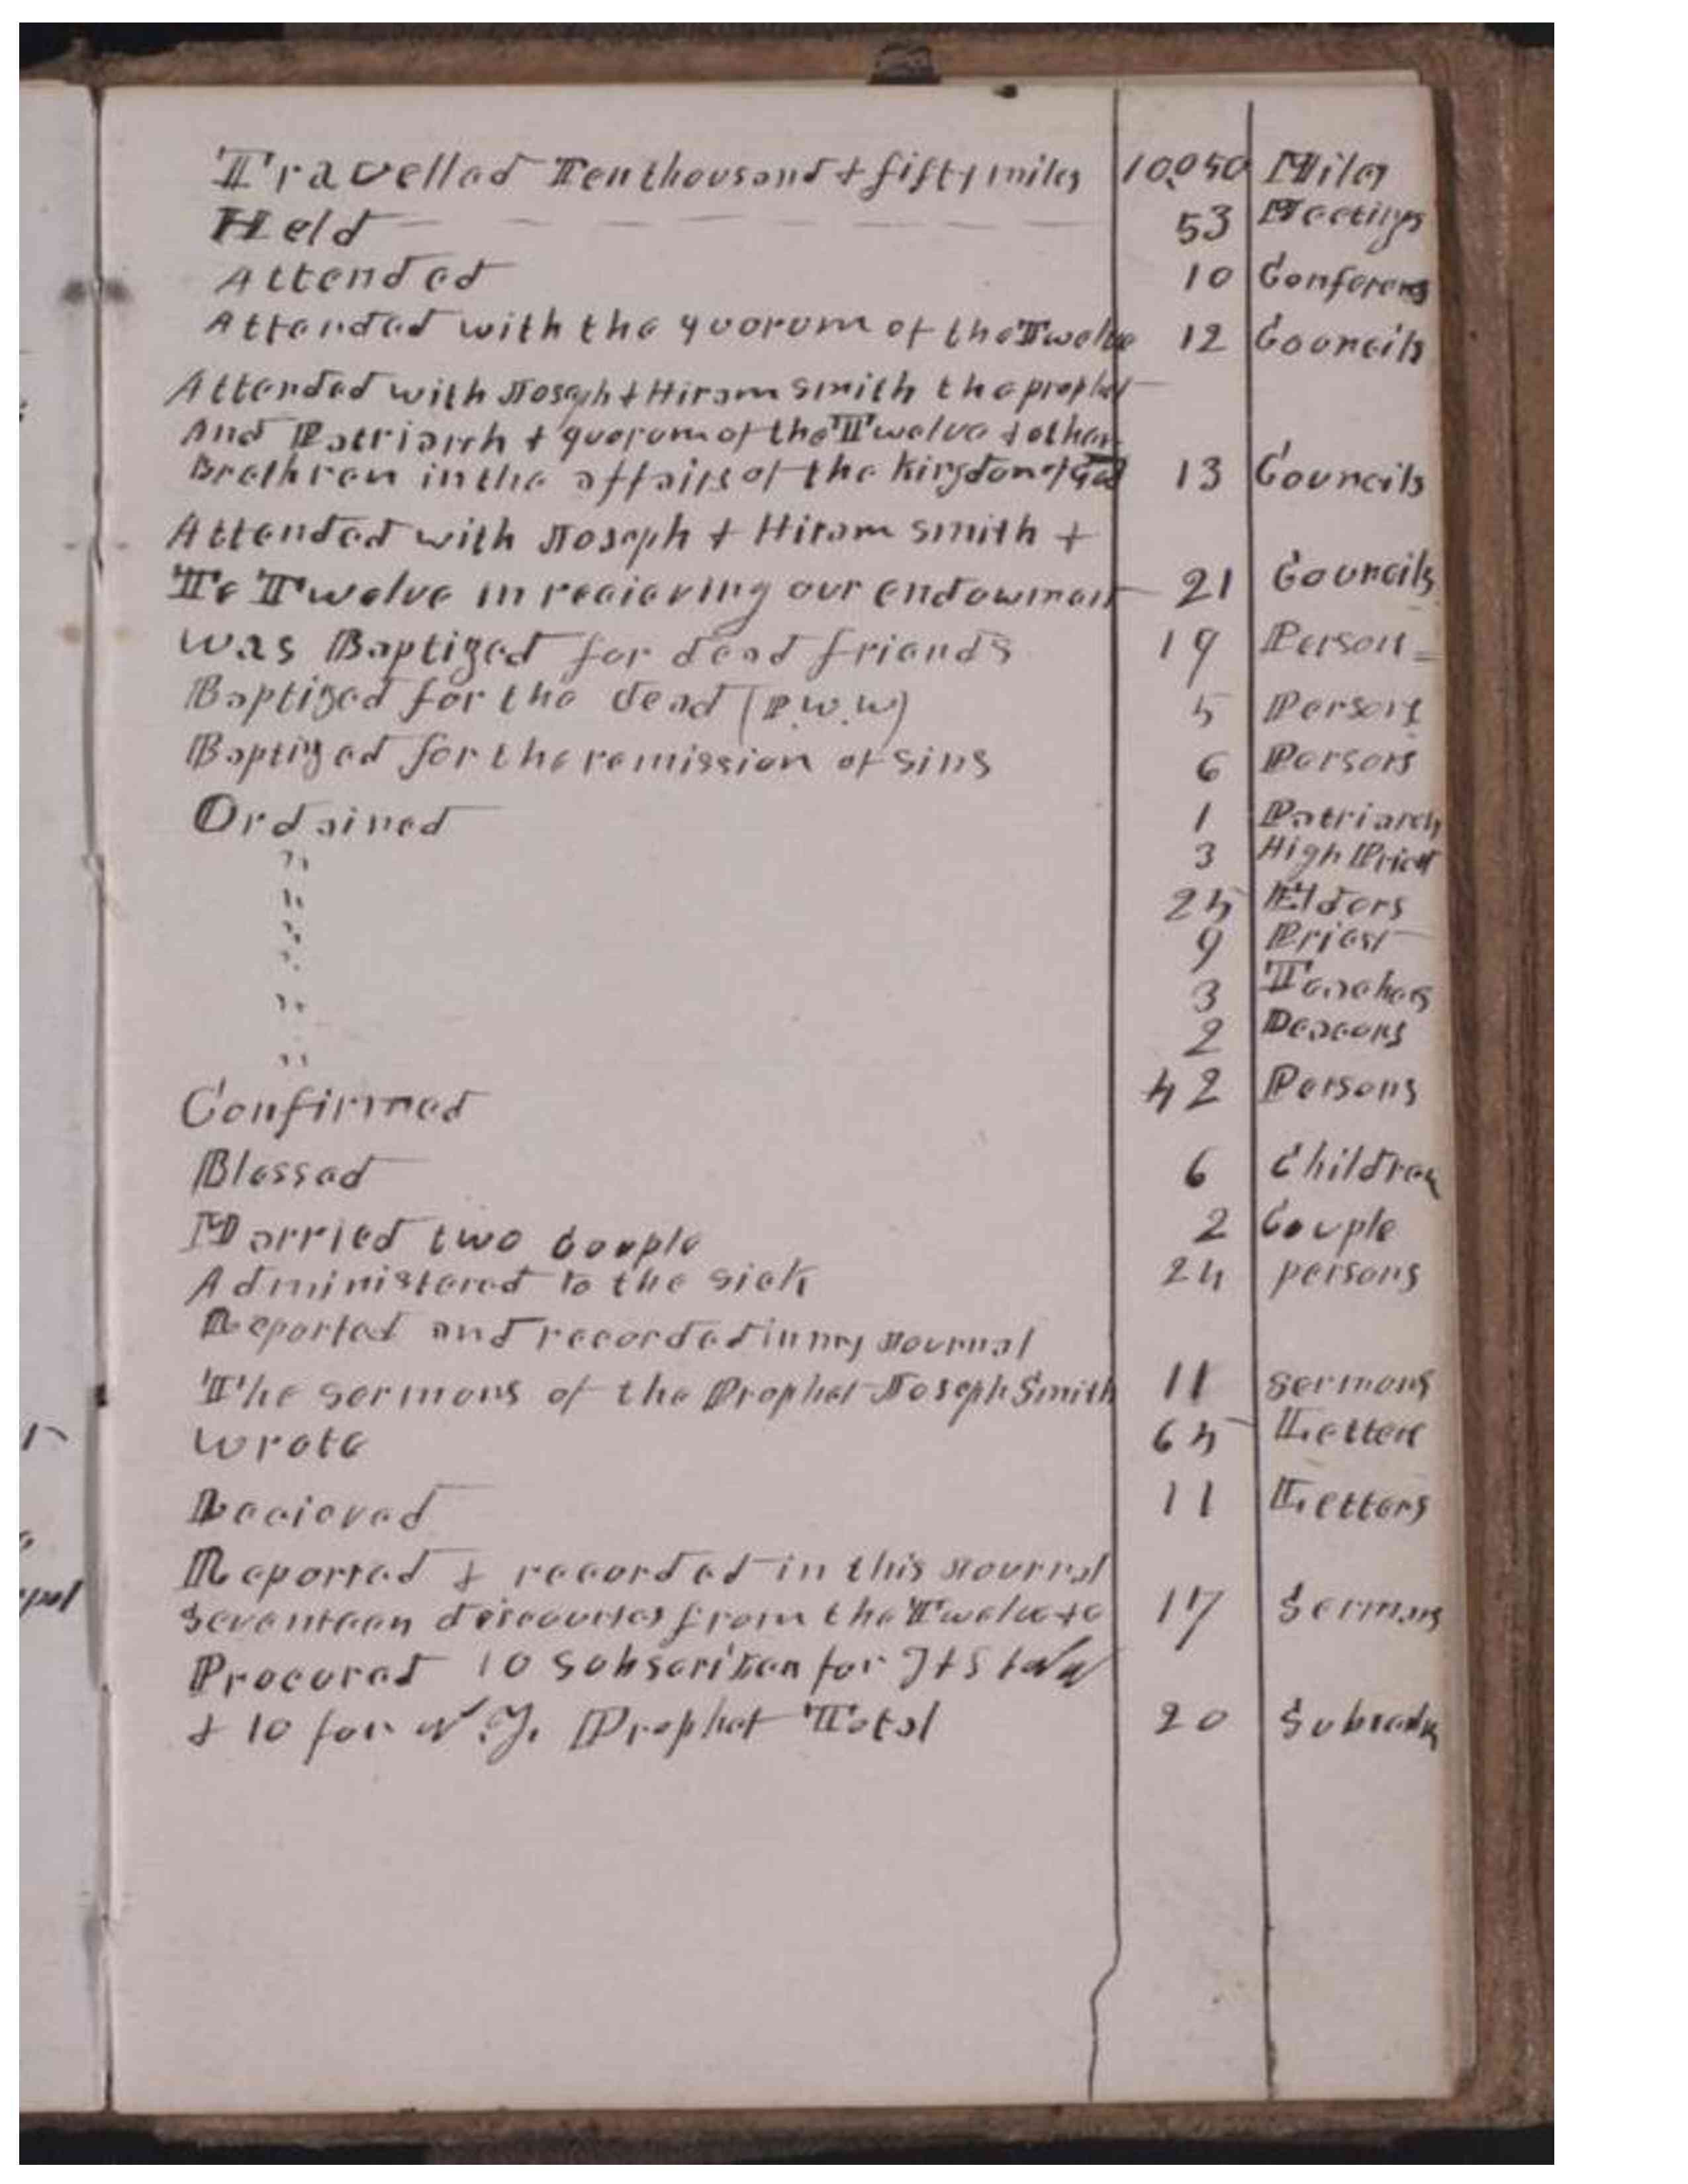 Travelled Ten thousand + fifty miles 10,050 Miles
Held 53 Meetings
Attended 10 Conferens
Attended with the quorum of the Twelve 12 Councils
Attended with Joseph + Hiram Smith the prophet
And Patriarch + quorum of the Twelve & other
Brethren in the affairs of the kingdom of God 13 Councils
Attended with Joseph + Hiram Smith +
Te Twelve in recieving our endowment 21 Councils
was Baptized for dead friends 19 Person
Baptized for the dead (P.W.W) 5 Persons
Baptized for the remission of sins 6 Persons
Ordained 1 Patriarch
" 3 High Priest
" 25 Elders
" 9 Priest
" 3 Teachers
" 2 Deacons
Confirmed 42 Persons
Blessed 6 Children
Married two Couple 2 Couple
Administered to the sick 24 persons
Reported and recorded in my Journal
The sermons of the Prophet Joseph Smith 11 sermons
wrote 65 Letters
Recieved 11 Letters
Reported + recorded in this Journal
Seventeen discourses from the Twelve +c 17 Sermons
Procured 10 Subscriben for T+S
+ 10 for N.Y. Prophet Total 20